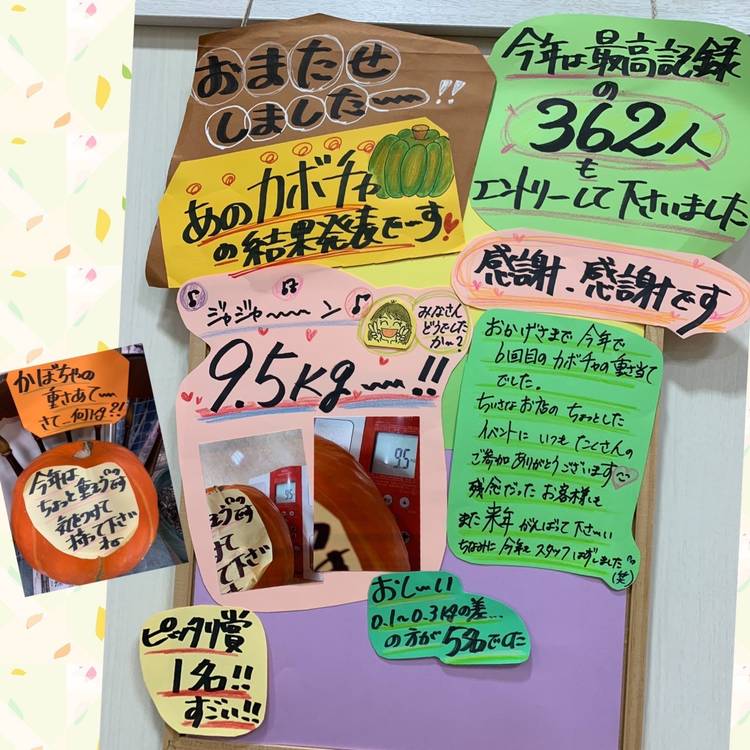 おまたせ
しました〜!!
あのカボチャ
の結果発表で〜す!
今年は最高記録
の
362人
も
エントリーして下さいました
感謝、感謝です
ジャジャ〜ン
みなさん
どうでした
か〜?
9.5kg〜!!
95
95
ょうです
て
て下さい
おかげさまで 今年で
6回目のカボチャの重さ当て
でした。
ちいさなお店の ちょっとした
イベントに いつも たくさんの
ご参加 ありがとうございます
残念だった お客様も
また 来年 がんばって 下さ〜い
ちなみに 今年も スタッフ はずしました
(笑)
かぼちゃの
重さあて〜
さて...何kg?!
今年は
ちょっと重そうです
気をつけて
持って下さい
ね
ピッタリ賞
1名!!
すごい!!
おし〜い
0.1〜0.3kgの差...
の方が 5名でした